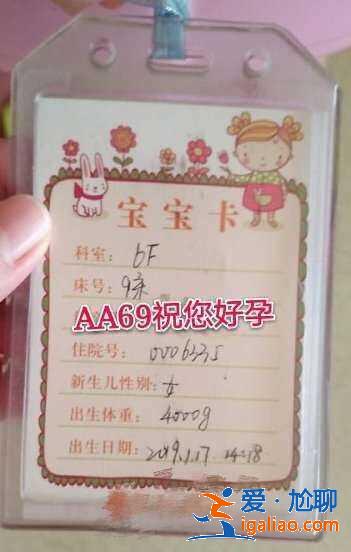 宝宝卡
科室: 6F
床号: 9床
AA69祝您好孕
住院号: 0006335
新生儿性别: 女
出生体重: 4000g
出生日期: 2019.1.17 14:18
爱·尬聊
igaliao.com